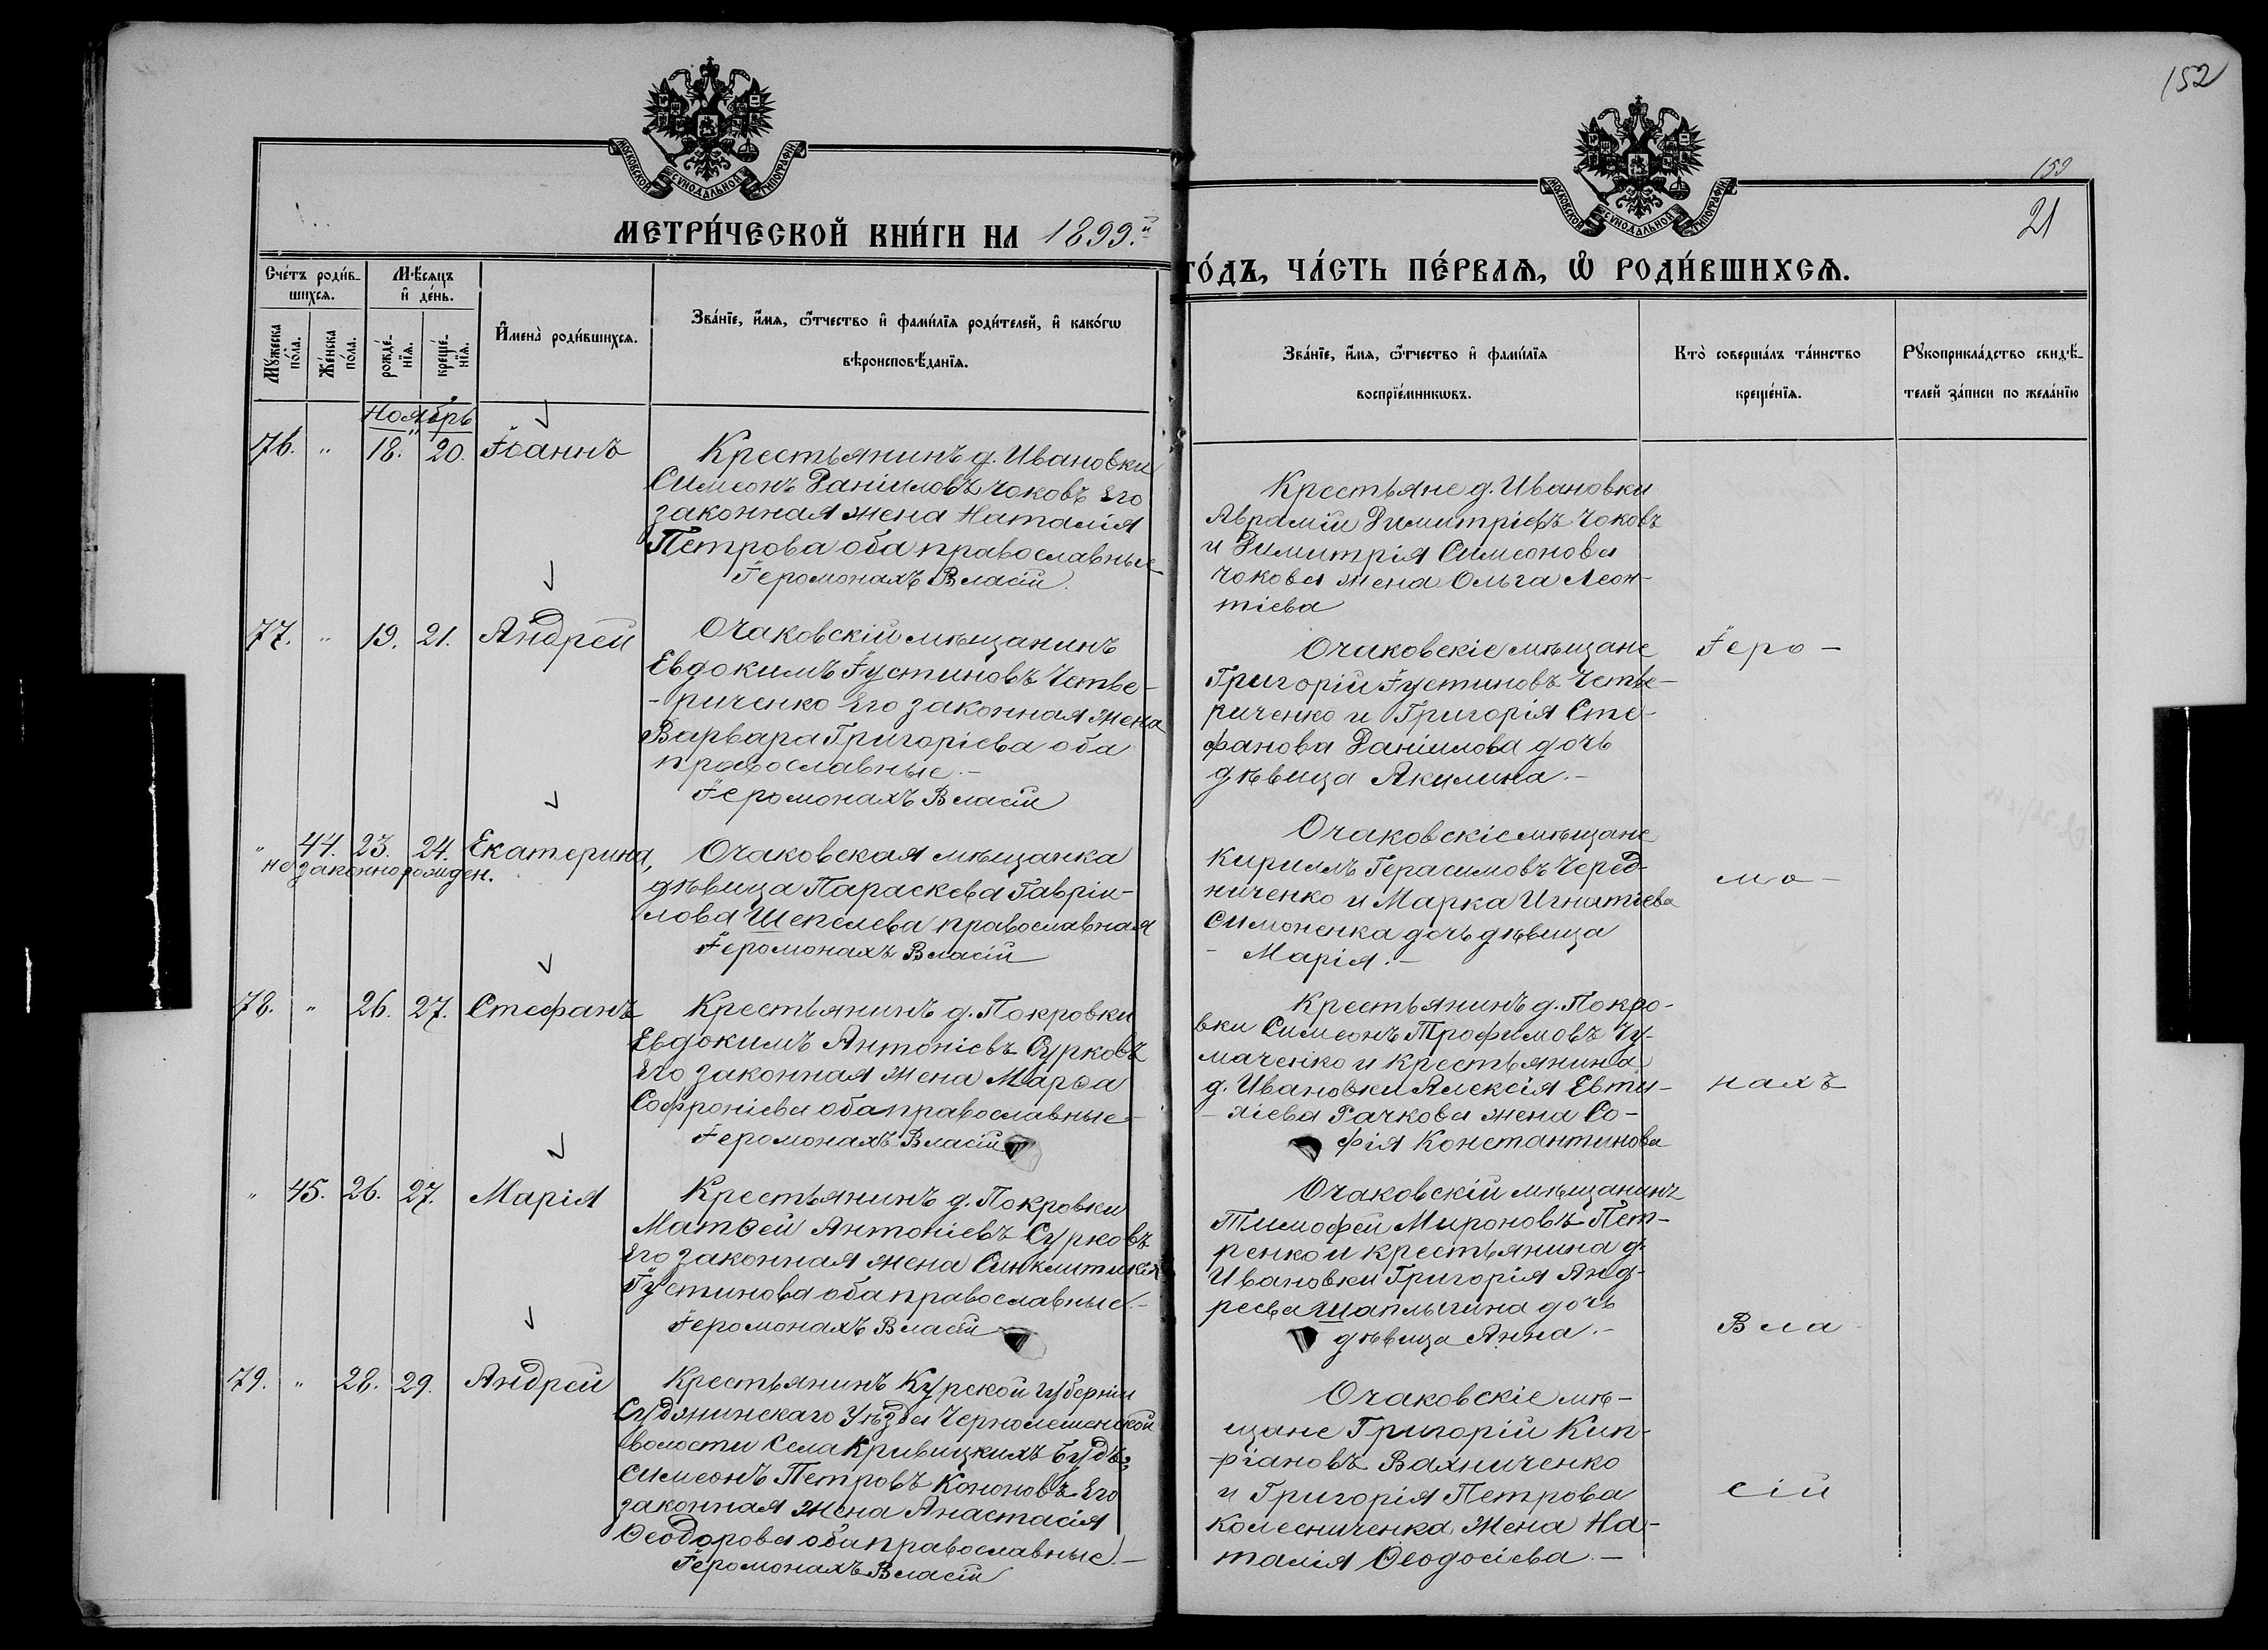 152
159
21
МОСКОВСКОЙ СѴНОДАЛЬНОЙ ТИПОГРАФІИ
МЕТРИ́ЧЕСКОЙ КНИ́ГИ НА 1899.й
Сче́тъ роди́в-
шихсѧ.
Мѣ́сѧцъ
и҆ де́нь.
Мꙋ́жеска
по́ла.
Же́нска
по́ла.
рожде́-
нїѧ.
креще́-
нїѧ.
И҆мена̀ роди́вшихсѧ.
Зва́нїе, и҆́мѧ, ѻ҆́тчество и҆ фами́лїѧ роди́телей, и҆ како́гѡ
вѣроисповѣ́данїѧ.
Ноябрь
76. " 18. 20. Іоаннъ
Крестьянинъ д. Ивановки
Симеонъ Даніиловъ Чоковъ Его
законная жена Наталія
Петрова оба православные
Іеромонахъ Власій.
77. " 19. 21. Андрей
Очаковскій мѣщанинъ
Евдокимъ Іустиновъ Четве-
-риченко Его законная жена
Варвара Григоріева оба
православные.-
Іеромонахъ Власій
" 44. 23. 24. Екатерина,
незаконнорожден.
Очаковская мѣщанка
дѣвица Параскева Гавріи-
лова Шепелева православная
Іеромонахъ Власій
78. " 26. 27. Стефанъ
Крестьянинъ д. Покровки
Евдокимъ Антоніевъ Сурковъ
Его законная жена Марѳа
Софроніева оба православные-
Іеромонахъ Власій
" 45. 26. 27. Марія
Крестьянинъ д. Покровки
Матѳей Антоніевъ Сурковъ
Его законная жена Синклитикія
Іустинова оба православные.-
Іеромонахъ Власій
79. " 28. 29. Андрей
Крестьянинъ Курской губерніи
Суджинскаго Уѣзда Чернолешенской
волости Села Кривицкихъ Будъ:
Симеонъ Петровъ Кононовъ Его
законная жена Анастасія
Ѳеодорова оба православные.-
Іеромонахъ Власій
МОСКОВСКОЙ СѴНОДАЛЬНОЙ ТИПОГРАФІИ
ГО́ДЪ, ЧА́СТЬ ПЕ́РВАѦ, Ѡ҆ РОДИ́ВШИХСѦ.
Зва́нїе, и҆́мѧ, ѻ҆́тчество и҆ фами́лїѧ
воспрїе́мникѡвъ.
Кто̀ соверша́лъ та́инство
креще́нїѧ.
Рꙋкоприкла́дство свидѣ́-
телей за́писи по жела́нїю
Крестьяне д. Ивановки
Аврамій Димитріевъ Чоковъ
и Димитрія Симеонова
Чокова жена Ольга Леон-
тіева
Очаковскіе мѣщане
Григорій Іустиновъ Четве-
риченко и Григорія Сте-
фанова Даніилова дочь
дѣвица Акилина.-
Очаковскіе мѣщане
Кириллъ Герасимовъ Черед-
ниченко и Марка Игнатіева
Симоненка дочь дѣвица
- Марія.-
Крестьянинъ д. Покро-
вки Симеонъ Трофимовъ Чу-
маченко и крестьянина
д. Ивановки Алексія Евти-
- хіева Рачкова жена Со-
фія Константинова
Очаковскій мѣщанинъ
Тимофей Мироновъ Пет-
ренко и крестьянина д.
Ивановки Григорія Анд-
реева Шаплыгина дочь
дѣвица Анна.-
Очаковскіе мѣ-
щане Григорій Кип-
ріановъ Вахниченко
и Григорія Петрова
Колесниченка жена На-
талія Ѳеодосіева.-
Іеро-
мо-
нахъ
Вла
сій